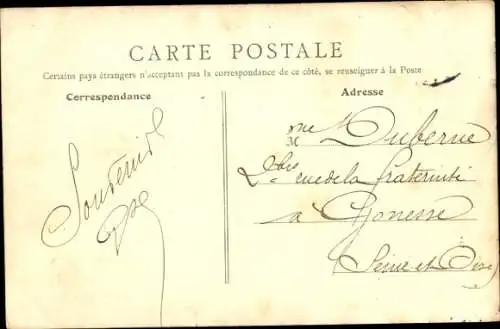 CARTE POSTALE
Certains pays étrangers n'acceptant pas la correspondance de ce côté, se renseigner à la Poste
Correspondance
Adresse
Souvenir
Mme Duberne
2 bis rue de la fraternité
a Gonesse
Seine et Oise